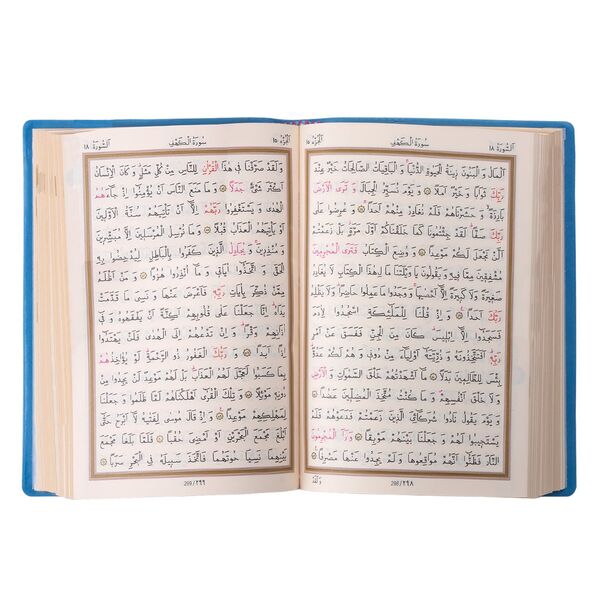 اَلسُّورَةُ ١٨ سُورَةُ الْكَهْفِ اَلْجُزْءُ ١٥
اَلْمَالُ وَ الْبَنُونَ زِينَةُ الْحَيٰوةِ الدُّنْيَا وَ الْبَاقِيَاتُ الصَّالِحَاتُ خَيْرٌ عِنْدَ
رَبِّكَ ثَوَابًا وَ خَيْرٌ اَمَلًا وَ يَوْمَ نُسَيِّرُ الْجِبَالَ وَ تَرَى الْاَرْضَ
بَارِزَةً وَ حَشَرْنَاهُمْ فَلَمْ نُغَادِرْ مِنْهُمْ اَحَدًا وَ عُرِضُوا عَلٰى
رَبِّكَ صَفًّا لَقَدْ جِئْتُمُونَا كَمَا خَلَقْنَاكُمْ اَوَّلَ مَرَّةٍ بَلْ زَعَمْتُمْ
اَلَّنْ نَجْعَلَ لَكُمْ مَوْعِدًا وَ وُضِعَ الْكِتَابُ فَتَرَى الْمُجْرِمِينَ
مُشْفِقِينَ مِمَّا فِيهِ وَ يَقُولُونَ يَا وَيْلَتَنَا مَا لِهٰذَا الْكِتَابِ لَا يُغَادِرُ
صَغِيرَةً وَ لَا كَبِيرَةً اِلَّا اَحْصٰيهَا وَ وَجَدُوا مَا عَمِلُوا حَاضِرًا وَ لَا يَظْلِمُ
رَبُّكَ اَحَدًا وَ اِذْ قُلْنَا لِلْمَلٰئِكَةِ اسْجُدُوا لِاٰدَمَ
فَسَجَدُوا اِلَّا اِبْلِيسَ كَانَ مِنَ الْجِنِّ فَفَسَقَ عَنْ اَمْرِ
رَبِّهِ اَفَتَتَّخِذُونَهُ وَ ذُرِّيَّتَهُ اَوْلِيَاءَ مِنْ دُونِى وَ هُمْ لَكُمْ عَدُوٌّ
بِئْسَ لِلظَّالِمِينَ بَدَلًا مَا اَشْهَدْتُهُمْ خَلْقَ السَّمٰوَاتِ وَ الْاَرْضِ
وَ لَا خَلْقَ اَنْفُسِهِمْ وَ مَا كُنْتُ مُتَّخِذَ الْمُضِلِّينَ عَضُدًا
وَ يَوْمَ يَقُولُ نَادُوا شُرَكَائِىَ الَّذِينَ زَعَمْتُمْ فَدَعَوْهُمْ فَلَمْ
يَسْتَجِيبُوا لَهُمْ وَ جَعَلْنَا بَيْنَهُمْ مَوْبِقًا وَ رَاَ الْمُجْرِمُونَ
النَّارَ فَظَنُّوا اَنَّهُمْ مُوَاقِعُوهَا وَ لَمْ يَجِدُوا عَنْهَا مَصْرِفًا
298/٢٩٨ وَ لَقَدْ
اَلْجُزْءُ ١٥ سُورَةُ الْكَهْفِ اَلسُّورَةُ ١٨
وَ لَقَدْ صَرَّفْنَا فِى هٰذَا الْقُرْاٰنِ لِلنَّاسِ مِنْ كُلِّ مَثَلٍ وَ كَانَ الْاِنْسَانُ
اَكْثَرَ شَىْءٍ جَدَلًا وَ مَا مَنَعَ النَّاسَ اَنْ يُؤْمِنُوا اِذْ جَاءَهُمُ
الْهُدٰى وَ يَسْتَغْفِرُوا رَبَّهُمْ اِلَّا اَنْ تَأْتِيَهُمْ سُنَّةُ الْاَوَّلِينَ
اَوْ يَأْتِيَهُمُ الْعَذَابُ قُبُلًا وَ مَا نُرْسِلُ الْمُرْسَلِينَ اِلَّا مُبَشِّرِينَ
وَ مُنْذِرِينَ وَ يُجَادِلُ الَّذِينَ كَفَرُوا بِالْبَاطِلِ لِيُدْحِضُوا بِهِ
الْحَقَّ وَ اتَّخَذُوا اٰيَاتِى وَ مَا اُنْذِرُوا هُزُوًا وَ مَنْ اَظْلَمُ
مِمَّنْ ذُكِّرَ بِاٰيَاتِ رَبِّهِ فَاَعْرَضَ عَنْهَا وَ نَسِىَ مَا قَدَّمَتْ
يَدَاهُ اِنَّا جَعَلْنَا عَلٰى قُلُوبِهِمْ اَكِنَّةً اَنْ يَفْقَهُوهُ وَ فِى
اٰذَانِهِمْ وَقْرًا وَ اِنْ تَدْعُهُمْ اِلَى الْهُدٰى فَلَنْ يَهْتَدُوا
اِذًا اَبَدًا وَ رَبُّكَ الْغَفُورُ ذُو الرَّحْمَةِ لَوْ يُؤَاخِذُهُمْ
بِمَا كَسَبُوا لَعَجَّلَ لَهُمُ الْعَذَابَ بَلْ لَهُمْ مَوْعِدٌ لَنْ يَجِدُوا مِنْ
دُونِهِ مَوْئِلًا وَ تِلْكَ الْقُرٰى اَهْلَكْنَاهُمْ لَمَّا ظَلَمُوا وَ جَعَلْنَا
لِمَهْلِكِهِمْ مَوْعِدًا وَ اِذْ قَالَ مُوسٰى لِفَتٰيهُ لَا اَبْرَحُ حَتّٰى
اَبْلُغَ مَجْمَعَ الْبَحْرَيْنِ اَوْ اَمْضِىَ حُقُبًا فَلَمَّا بَلَغَا مَجْمَعَ
بَيْنِهِمَا نَسِيَا حُوتَهُمَا فَاتَّخَذَ سَبِيلَهُ فِى الْبَحْرِ سَرَبًا
299/٢٩٩